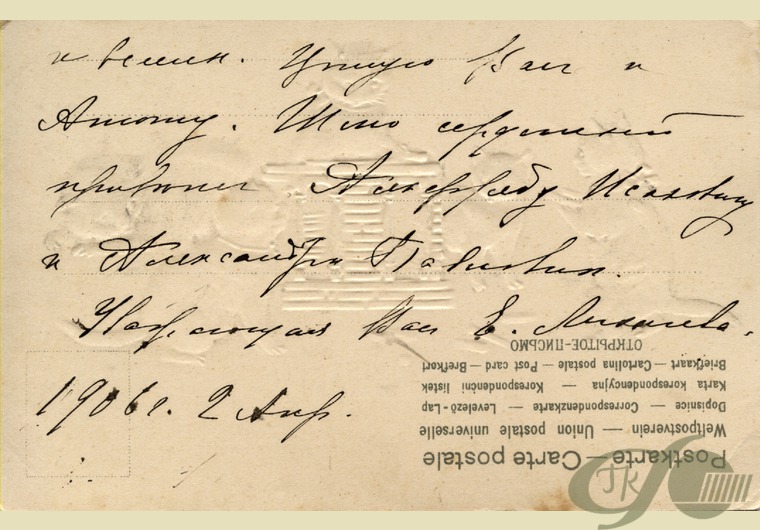 и всему. Целую Вас и
Антошу. Шлю сердечный
Альфреду Исаковичу
и Александре Павловне.
Уважающая Вас Е.
1906 г. 2 Апр.
Postkarte — Carte postale
Weltpostverein — Union postale universelle
Dopisnice — Correspondenzkarte — Levelező-Lap
Karta korespondencyjna — Korespondenční lístek
Briefkaart — Cartolina postale — Post card — Brefkort
ОТКРЫТОЕ-ПИСЬМО